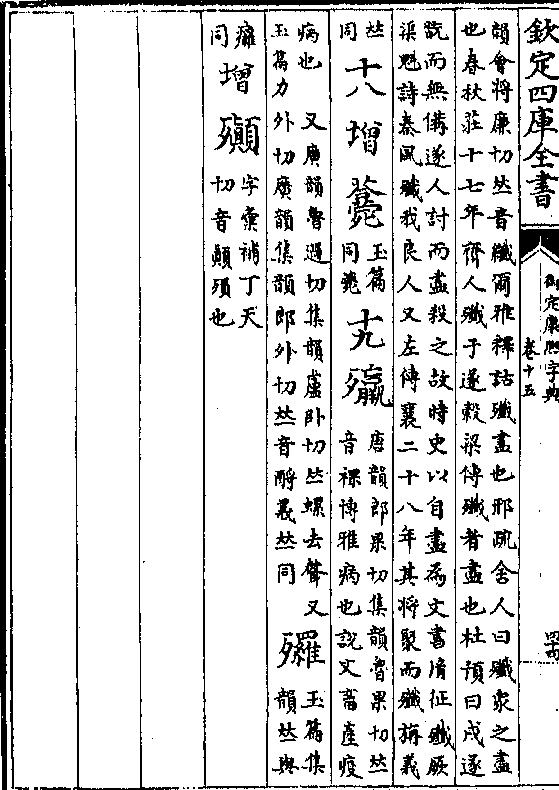 欽定四庫全書
御定康熙字典
卷十五
韻會將廉切𠀤音殲爾雅釋詁殲盡也邢疏舍人曰殲衆之盡
也春秋莊十七年齊人殲于遂穀梁傳殲者盡也杜預曰戍遂
翫而無備遂人討而盡殺之故時史以自盡爲文書𦙍征殲厥
渠魁詩秦風殲我良人又左傳襄二十八年其將聚而殲旃義
𠀤
同
十八
增
玉篇
同薨
十九
㱻
唐韻郎果切集韻魯果切𠀤
音裸博雅病也說文畜產疫
病也 又廣韻魯過切集韻盧臥切𠀤螺去聲又
玉篇力外切廣韻集韻郎外切𠀤音酹義𠀤同
玉篇集
韻𠀤與
同
增
字彙補丁天
切音顚殞也